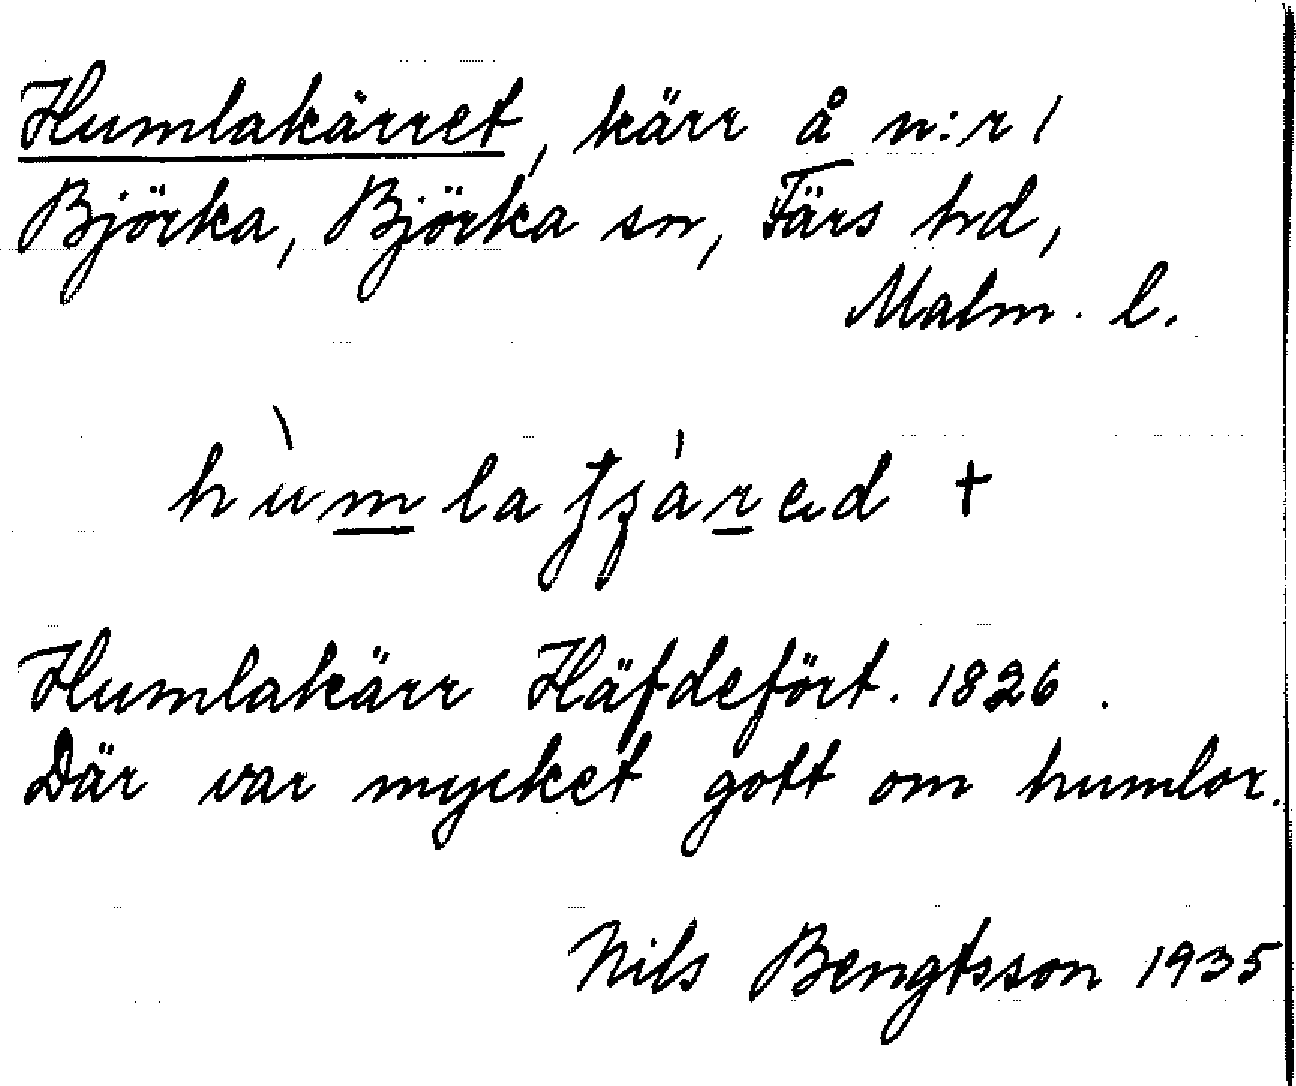 Humlakärret, kärr å n:r 1
Björka, Björka sn, Färs hd,
Malm. l.
Humlakärr Häfdefört. 1826.
Där var mycket gott om humlor.
Nils Bengtsson 1935